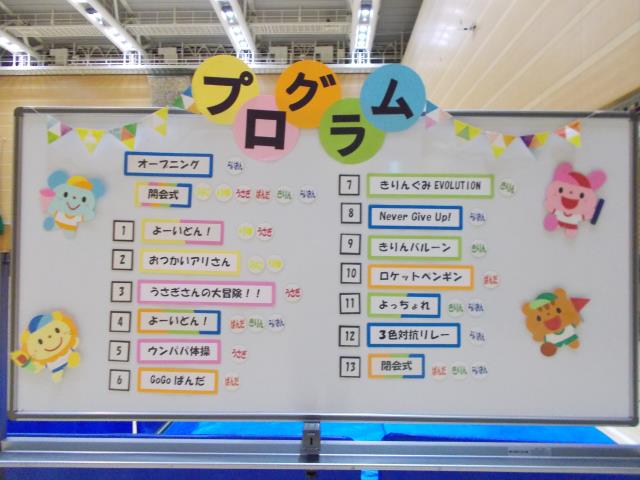 プログラム
オープニング らいおん
開会式 うさぎ ぱんだ きりん らいおん
1 よーいどん! うさぎ
2 おつかいアリさん
3 うさぎさんの大冒険!! うさぎ
4 よーいどん! ぱんだ きりん らいおん
5 ウンパパ体操 うさぎ
6 GoGo ぱんだ ぱんだ
7 きりんぐみ EVOLUTION きりん
8 Never Give Up! らいおん
9 きりんバルーン きりん
10 ロケットペンギン ぱんだ
11 よっちょれ きりん らいおん
12 3色対抗リレー らいおん
13 閉会式 ぱんだ きりん らいおん